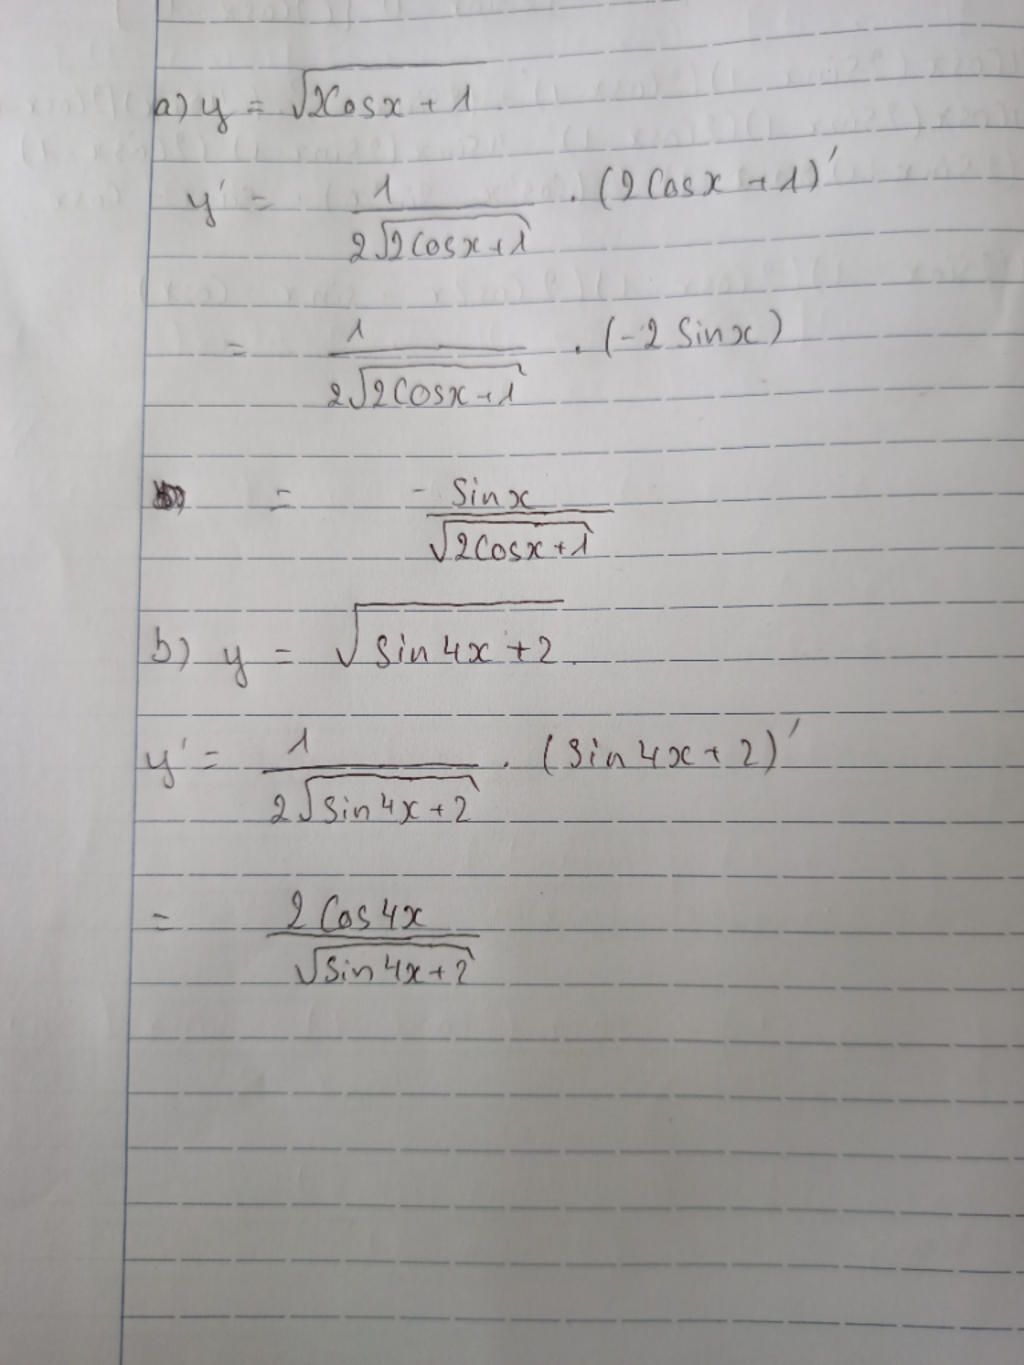 a) y = √(2cosx + 1)
y' = 1/(2√(2cosx+1)) . (2cosx + 1)'
= 1/(2√(2cosx+1)) . (-2 sinx)
= -sinx/√(2cosx+1)
b) y = √(sin4x + 2)
y' = 1/(2√(sin4x+2)) . (sin4x + 2)'
= 2cos4x/√(sin4x+2)